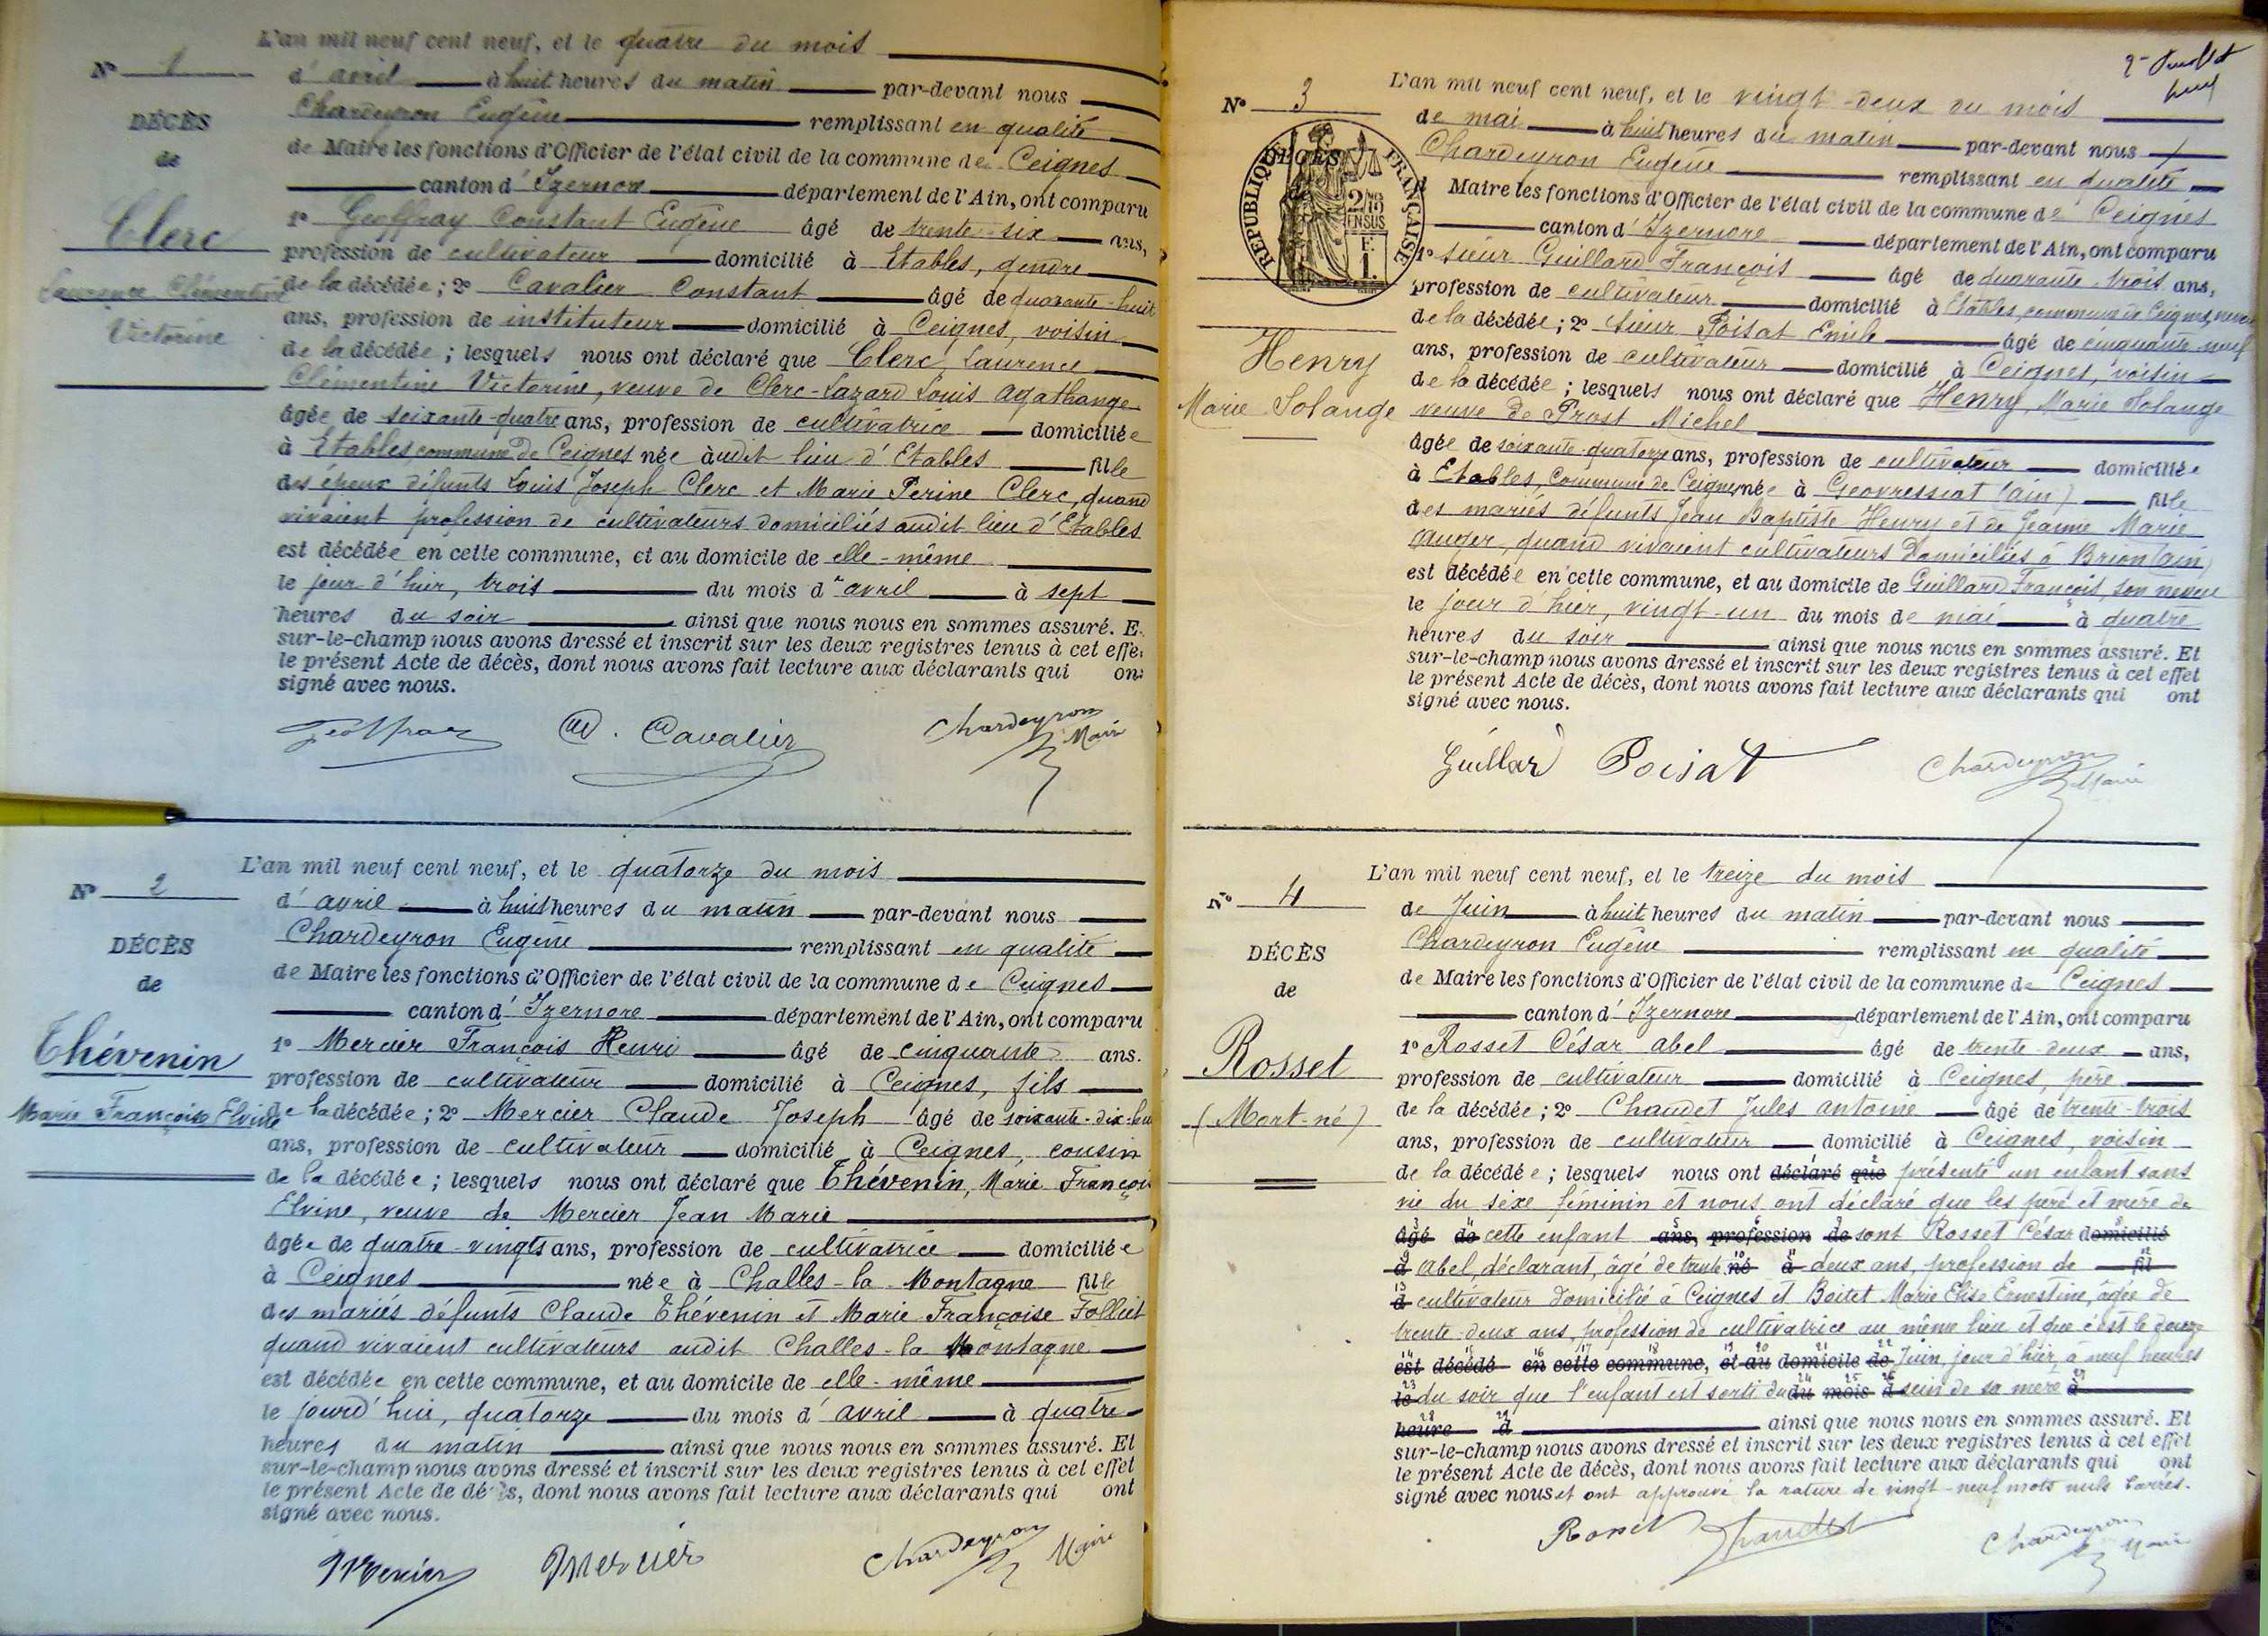 L'an mil neuf cent neuf, et le quatre du mois
N° 1
d'avril à huit heures du matin par-devant nous
Chardeyron Eugène remplissant en qualité
DÉCÈS
de
de Maire les fonctions d'Officier de l'état civil de la commune de Ceignes
canton d'Izernore département de l'Ain, ont comparu
Clerc
Laurence Clémentine
Victorine
1° Geoffray Constant Eugène âgé de trente-six ans,
profession de cultivateur domicilié à Etables, gendre
de la décédée; 2° Cavalier Constant âgé de quarante-huit
ans, profession de instituteur domicilié à Ceignes, voisin
de la décédée; lesquels nous ont déclaré que Clerc, Laurence
Clémentine Victorine, veuve de Clerc-Lazard Louis Agathange
âgée de soixante-quatre ans, profession de cultivatrice domiciliée
à Etables commune de Ceignes née audit lieu d'Etables fille
des époux défunts Louis Joseph Clerc et Marie Perine Clerc, quand
vivaient profession de cultivateurs domiciliés audit lieu d'Etables
est décédée en cette commune, et au domicile de elle-même
le jour d'hier, trois du mois d'avril à sept
heures du soir ainsi que nous nous en sommes assuré. E
sur-le-champ nous avons dressé et inscrit sur les deux registres tenus à cet effe
le présent Acte de décès, dont nous avons fait lecture aux déclarants qui on
signé avec nous.
Geoffray Cavalier Chardeyron
Maire
L'an mil neuf cent neuf, et le quatorze du mois
N° 2
d'avril à huit heures du matin par-devant nous
Chardeyron Eugène remplissant en qualité
DÉCÈS
de
de Maire les fonctions d'Officier de l'état civil de la commune de Ceignes
canton d'Izernore département de l'Ain, ont comparu
Thévenin
Marie Françoise Elvine
1° Mercier François Henri âgé de cinquante ans.
profession de cultivateur domicilié à Ceignes, fils
de la décédée; 2° Mercier Claude Joseph âgé de soixante-dix-hu
ans, profession de cultivateur domicilié à Ceignes, cousin
de la décédée; lesquels nous ont déclaré que Thévenin, Marie Françoi
Elvine, veuve de Mercier Jean Marie
âgée de quatre-vingts ans, profession de cultivatrice domiciliée
à Ceignes née à Challes-la-Montagne fille
des mariés défunts Claude Thévenin et Marie Françoise Folliet
quand vivaient cultivateurs audit Challes-la Montagne
est décédée en cette commune, et au domicile de elle-même
le jourd'hui, quatorze du mois d'avril à quatre
heures du matin ainsi que nous nous en sommes assuré. Et
sur-le-champ nous avons dressé et inscrit sur les deux registres tenus à cet effet
le présent Acte de décès, dont nous avons fait lecture aux déclarants qui ont
signé avec nous.
Mercier Mercier Chardeyron Maire
L'an mil neuf cent neuf, et le vingt-deux du mois
N° 3
de mai à huit heures du matin par-devant nous
Chardeyron Eugène remplissant en qualité
DÉCÈS
de
RÉPUBLIQUE FRANÇAISE
F.
1.
Maire les fonctions d'Officier de l'état civil de la commune de Ceignes
canton d'Izernore département de l'Ain, ont comparu
Henry
Marie Solange
1° sieur Guillard François âgé de quarante-trois ans,
profession de cultivateur domicilié à Etables, commune de Ceignes, neveu
de la décédée; 2° sieur Poisat Emile âgé de cinquante-neuf
ans, profession de cultivateur domicilié à Ceignes, voisin
de la décédée; lesquels nous ont déclaré que Henry, Marie Solange
veuve de Prost Michel
âgée de soixante-quatorze ans, profession de cultivateur domiciliée
à Etables, commune de Ceignes, née à Geovressiat (Ain) fille
des mariés défunts Jean Baptiste Henry et de Jeanne Marie
Auger, quand vivaient cultivateurs domiciliés à Brion (Ain)
est décédée en cette commune, et au domicile de Guillard François, son neveu
le jour d'hier, vingt-un du mois de mai à quatre
heures du soir ainsi que nous nous en sommes assuré. Et
sur-le-champ nous avons dressé et inscrit sur les deux registres tenus à cet effet
le présent Acte de décès, dont nous avons fait lecture aux déclarants qui ont
signé avec nous.
Guillard Poisat Chardeyron
Maire
L'an mil neuf cent neuf, et le treize du mois
N° 4
de Juin à huit heures du matin par-devant nous
Chardeyron Eugène remplissant en qualité
DÉCÈS
de
de Maire les fonctions d'Officier de l'état civil de la commune de Ceignes
canton d'Izernore département de l'Ain, ont comparu
Rosset
(Mort-né)
1° Rosset César Abel âgé de trente-deux ans,
profession de cultivateur domicilié à Ceignes, père
de la décédée; 2° Chaudet Jules Antoine âgé de trente-trois
ans, profession de cultivateur domicilié à Ceignes, voisin
de la décédée; lesquels nous ont déclaré que présenté un enfant sans
vie du sexe féminin et nous ont déclaré que les père et mère de
âgé de cette enfant ans, profession de sont Rosset César domicilié
à Abel, déclarant, âgé de trente né à deux ans, profession de fil
d cultivateur domicilié à Ceignes et Boitet Marie Elise Ernestine, âgée de
trente-deux ans, profession de cultivatrice au même lieu et que c'est le douze
est décédé en cette commune, et au domicile de Juin, jour d'hier, à neuf heures
le du soir que l'enfant est sorti du du mois d sein de sa mère à
heure d ainsi que nous nous en sommes assuré. Et
sur-le-champ nous avons dressé et inscrit sur les deux registres tenus à cet effet
le présent Acte de décès, dont nous avons fait lecture aux déclarants qui ont
signé avec nous et ont approuvé la rature de vingt-neuf mots nuls barrés.
Rosset Chaudet Chardeyron
Maire